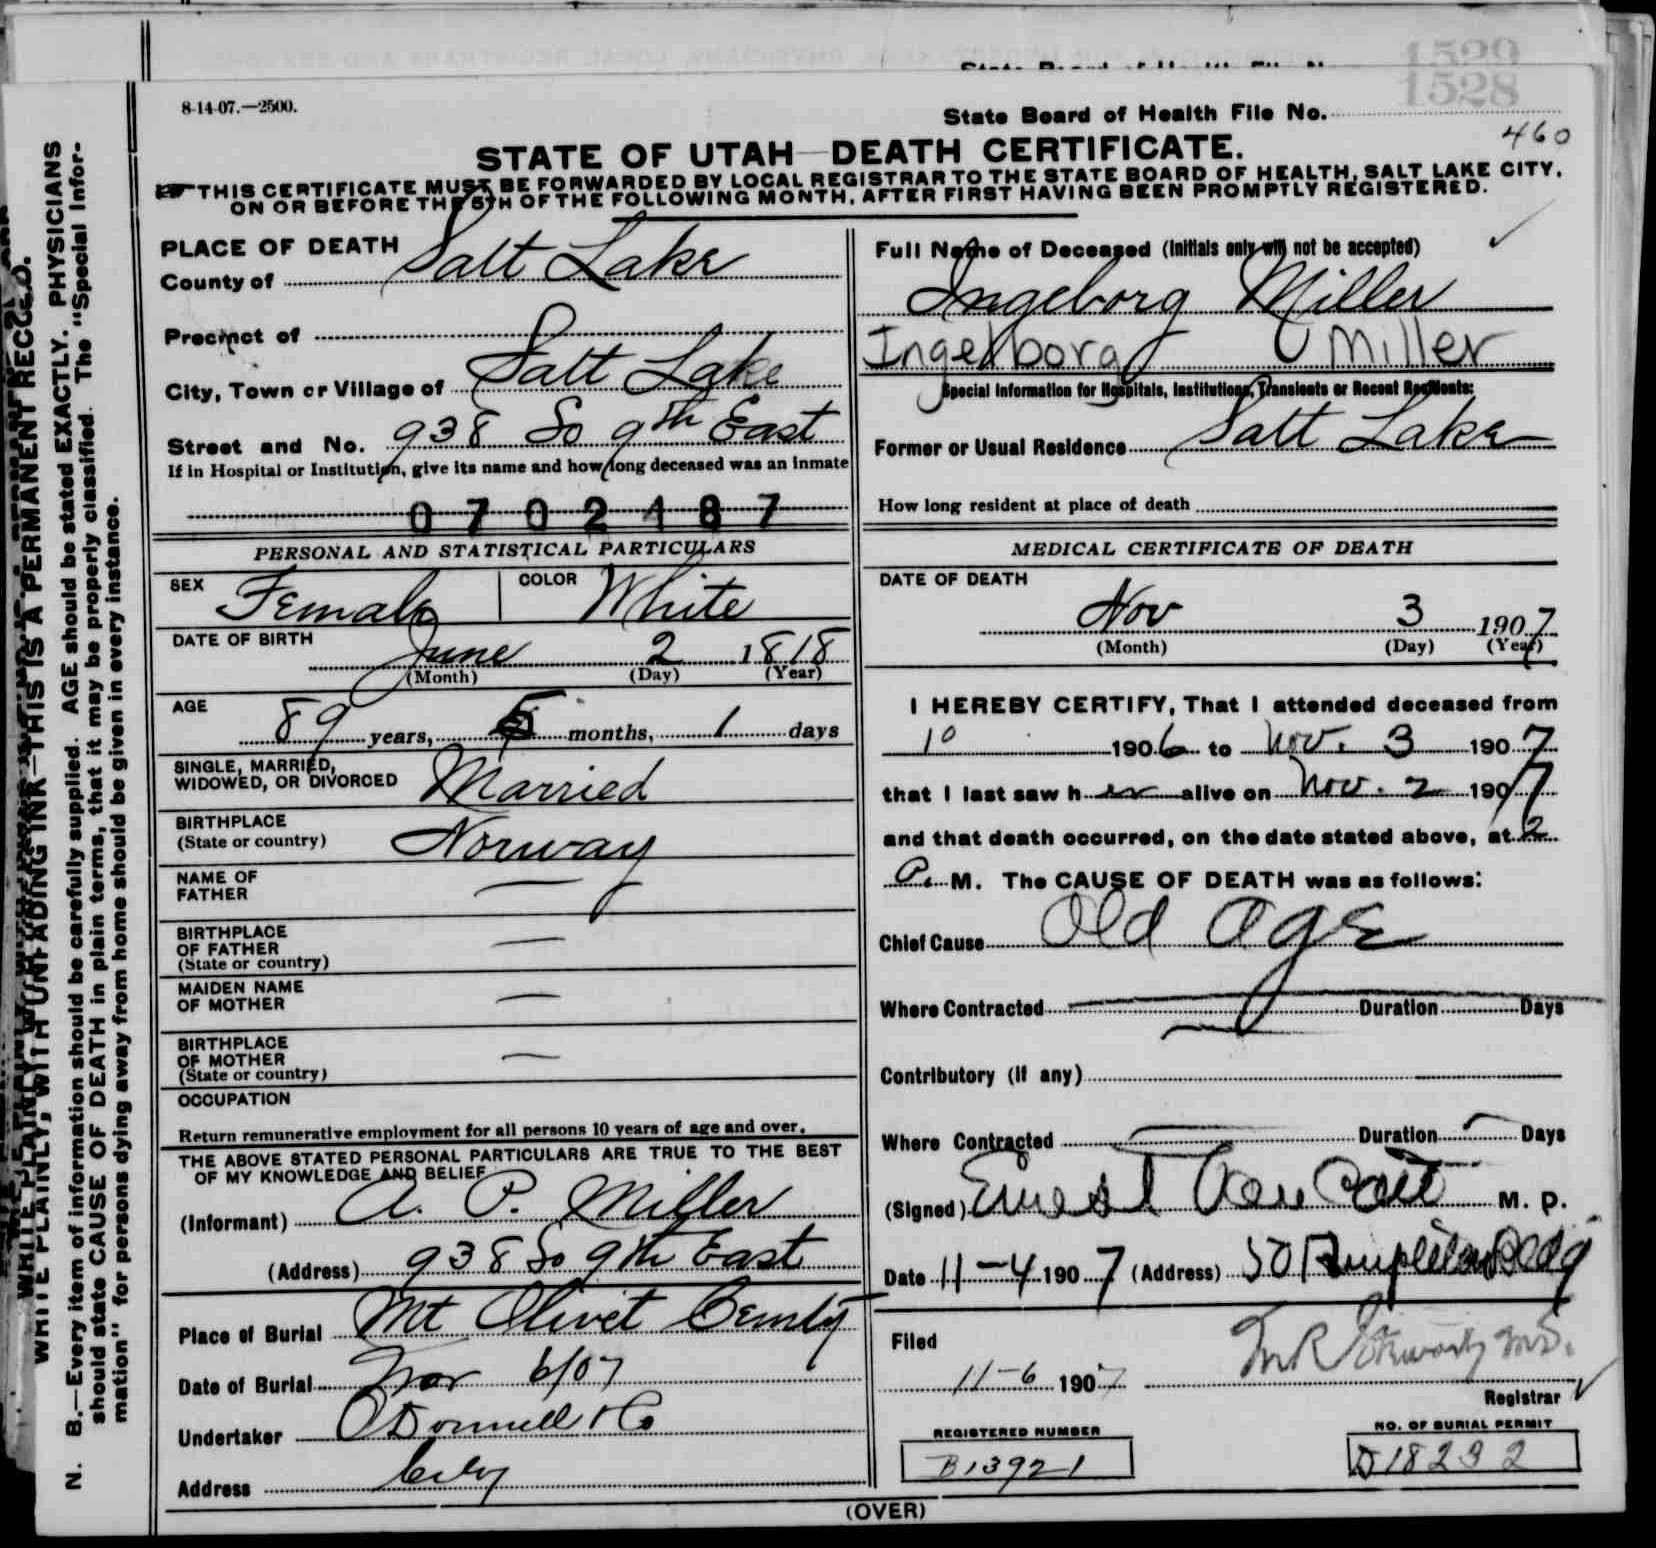 State Board of Health File No.
1529
1528
8-14-07.—2500.
State Board of Health File No.
460
STATE OF UTAH—DEATH CERTIFICATE.
THIS CERTIFICATE MUST BE FORWARDED BY LOCAL REGISTRAR TO THE STATE BOARD OF HEALTH, SALT LAKE CITY,
ON OR BEFORE THE 5TH OF THE FOLLOWING MONTH, AFTER FIRST HAVING BEEN PROMPTLY REGISTERED.
PLACE OF DEATH
County of Salt Lake
Precinct of
City, Town or Village of Salt Lake
Street and No. 938 So 9th East
If in Hospital or Institution, give its name and how long deceased was an inmate
0702487
PERSONAL AND STATISTICAL PARTICULARS
SEX Female COLOR White
DATE OF BIRTH
June 2 1818
(Month) (Day) (Year)
AGE
89 years, 5 months, 1 days
SINGLE, MARRIED,
WIDOWED, OR DIVORCED Married
BIRTHPLACE
(State or country) Norway
NAME OF
FATHER —
BIRTHPLACE
OF FATHER —
(State or country)
MAIDEN NAME
OF MOTHER —
BIRTHPLACE
OF MOTHER —
(State or country)
OCCUPATION
Return remunerative employment for all persons 10 years of age and over.
THE ABOVE STATED PERSONAL PARTICULARS ARE TRUE TO THE BEST
OF MY KNOWLEDGE AND BELIEF
(Informant) A. P. Miller
(Address) 938 So 9th East
Place of Burial Mt Olivet Cemty
Date of Burial Nov 6/07
Undertaker O'Donnell & Co
Address City
Full Name of Deceased (Initials only will not be accepted)
Ingeborg Miller
Ingelborg Miller
Special Information for Hospitals, Institutions, Transients or Recent Residents:
Former or Usual Residence Salt Lake
How long resident at place of death
MEDICAL CERTIFICATE OF DEATH
DATE OF DEATH
Nov 3 1907
(Month) (Day) (Year)
I HEREBY CERTIFY, That I attended deceased from
10 1906 to Nov. 3 1907
that I last saw her alive on Nov. 2 1907
and that death occurred, on the date stated above, at 2
P. M. The CAUSE OF DEATH was as follows:
Chief Cause Old Age
Where Contracted Duration Days
Contributory (if any)
Where Contracted Duration Days
(Signed) Ernest Van Cott M. D.
Date 11-4 1907 (Address) 50
Filed
11-6 1907
Registrar
REGISTERED NUMBER
B13921
NO. OF BURIAL PERMIT
D18232
(OVER)
WRITE PLAINLY, WITH UNFADING INK—THIS IS A PERMANENT RECORD.
N. B.—Every item of information should be carefully supplied. AGE should be stated EXACTLY. PHYSICIANS
should state CAUSE OF DEATH in plain terms, that it may be properly classified. The "Special Infor-
mation" for persons dying away from home should be given in every instance.